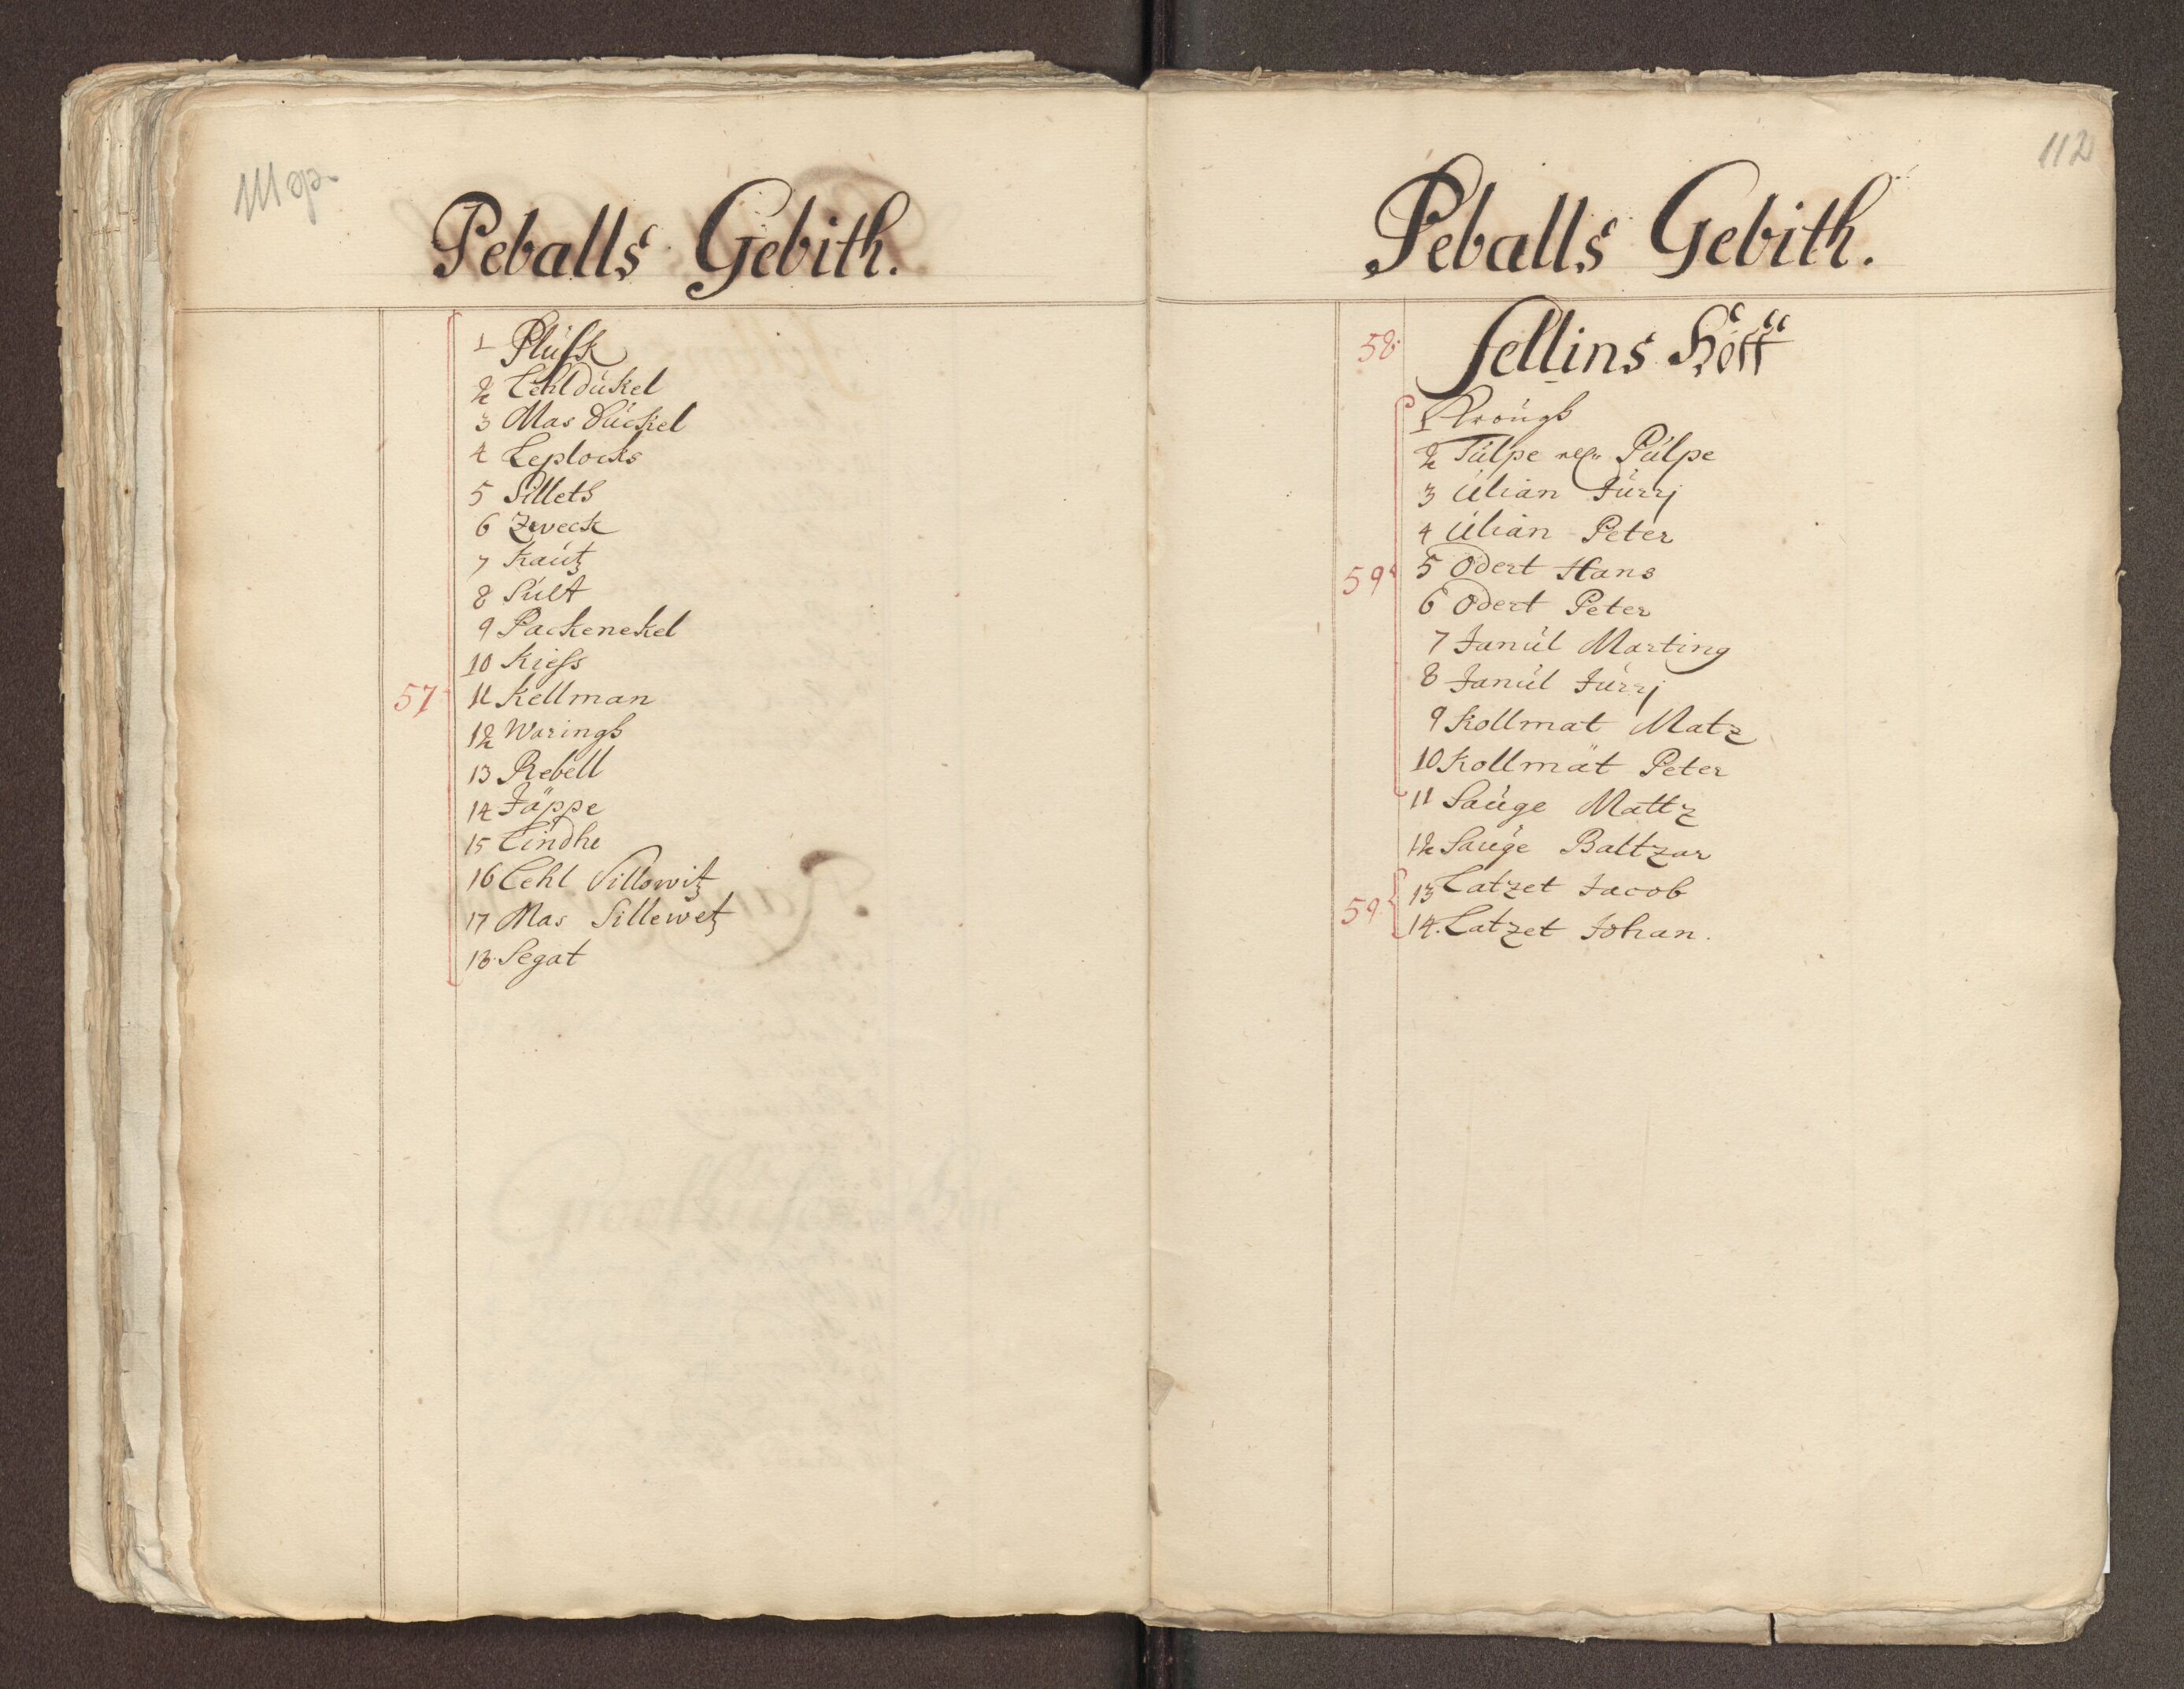 111 op.
Peballs Gebith.
1 Plusk
2 Lehldukel
3 Mas Duckel
4 Leplocks
5 Sillets
6 Zweck
7 Kautz
8 Sult
9 Packenekel
10 Kiess
57 11 Kellman
12 Warings
13 Rebell
14 Jäppe
15 Lindhe
16 Lehl Sillowitz
17 Mas Sillewetz
18 Segat
112
Peballs Gebith.
58 Sellins Hoff
1 Krougs
2 Tulpe Pulpe
3 Ulian Jürrj
4 Ulian Peter
59 5 Odert Hans
6 Odert Peter
7 Janul Marting
8 Janul Jürrj
9 Kollmat Matz
10 Kollmat Peter
11 Sauge Mattz
12 Sauge Baltzar
13 Latzet Jacob
59 14. Latzet Johan.